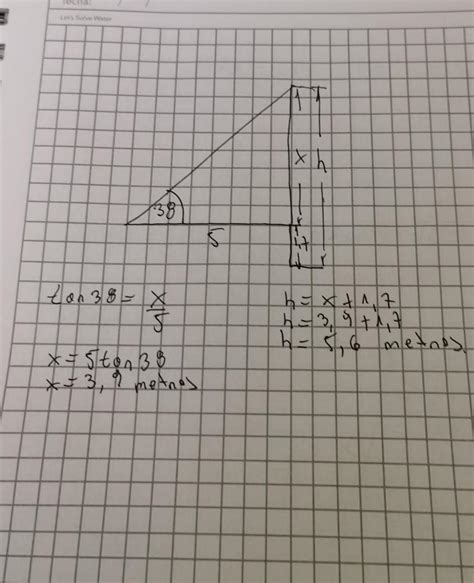 fecha:
Let's Solve Water
x h
38
5
1,7
tan 38 = x/5
x = 5 tan 38
x = 3,9 metros
h = x + 1,7
h = 3,9 + 1,7
h = 5,6 metros